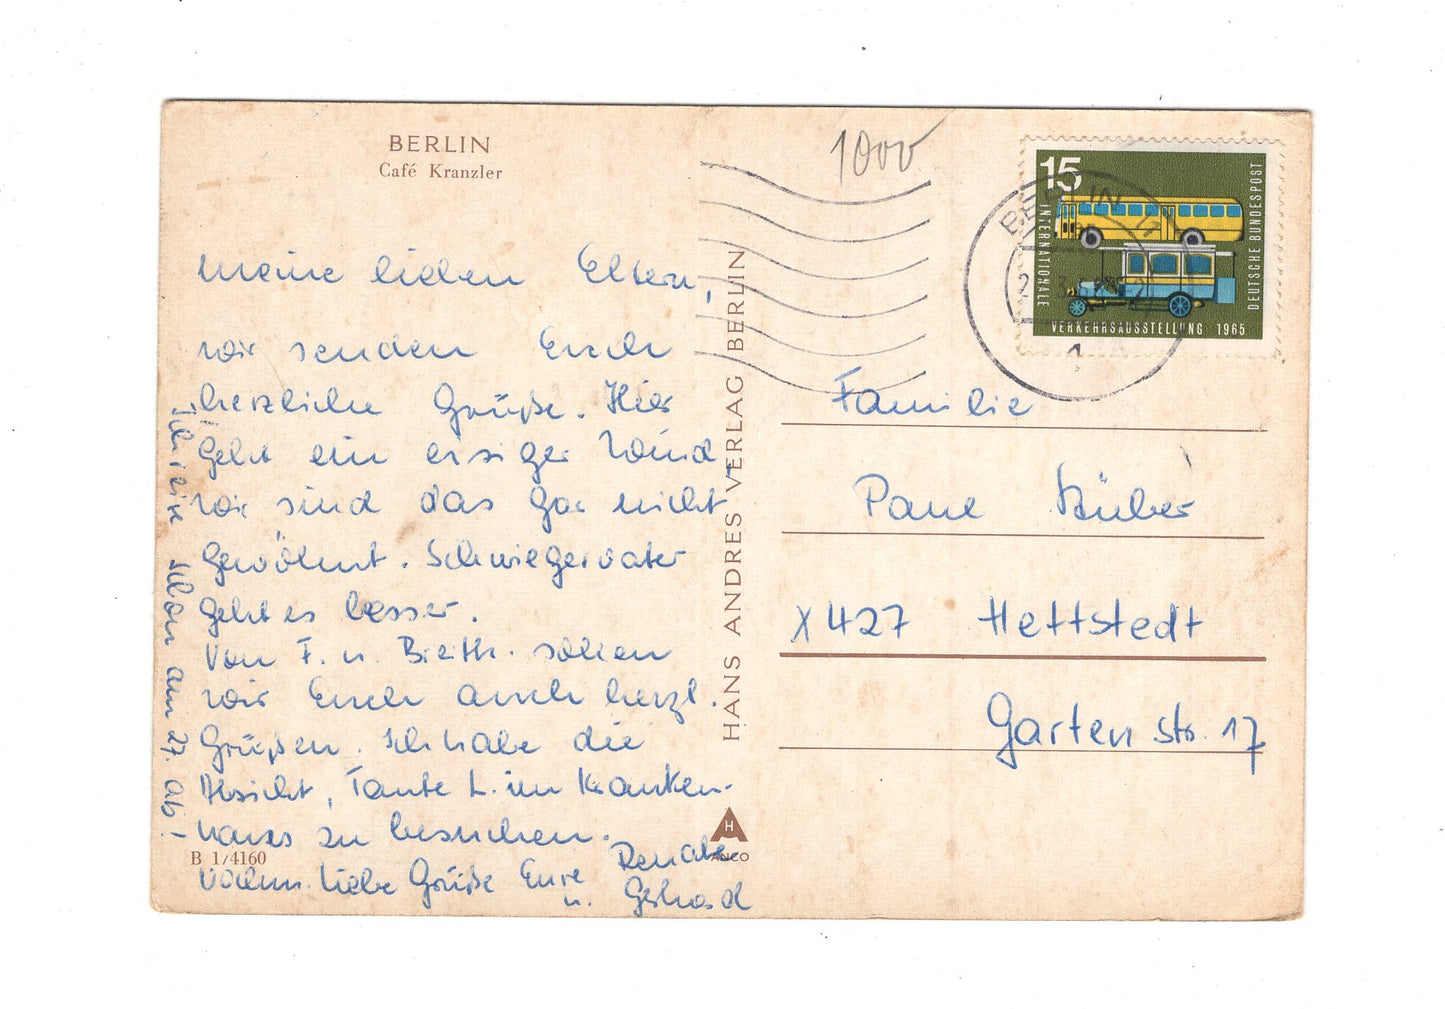 BERLIN
Café Kranzler
meine lieben Eltern,
wir senden Euch
herzliche Grüße. Hier
geht ein eisiger Wind,
wir sind das gar nicht
gewöhnt. Schwiegervater
geht es besser.
Von F. u. Bieth. sollen
wir Euch auch herzl.
Grüßen. Ich habe die
Absicht, Tante L. im Kranken-
haus zu besuchen.
Liebe Grüße Eure Renate
u. Gerhard
Ich reise schon am 27. ab!
B 1/4160
HANS ANDRES VERLAG BERLIN
H
ANCO
1000
15
INTERNATIONALE
VERKEHRSAUSSTELLUNG 1965
DEUTSCHE BUNDESPOST
BERLIN 11
1
Familie
Paul Hüber
X 427 Hettstedt
Gartenstr. 17